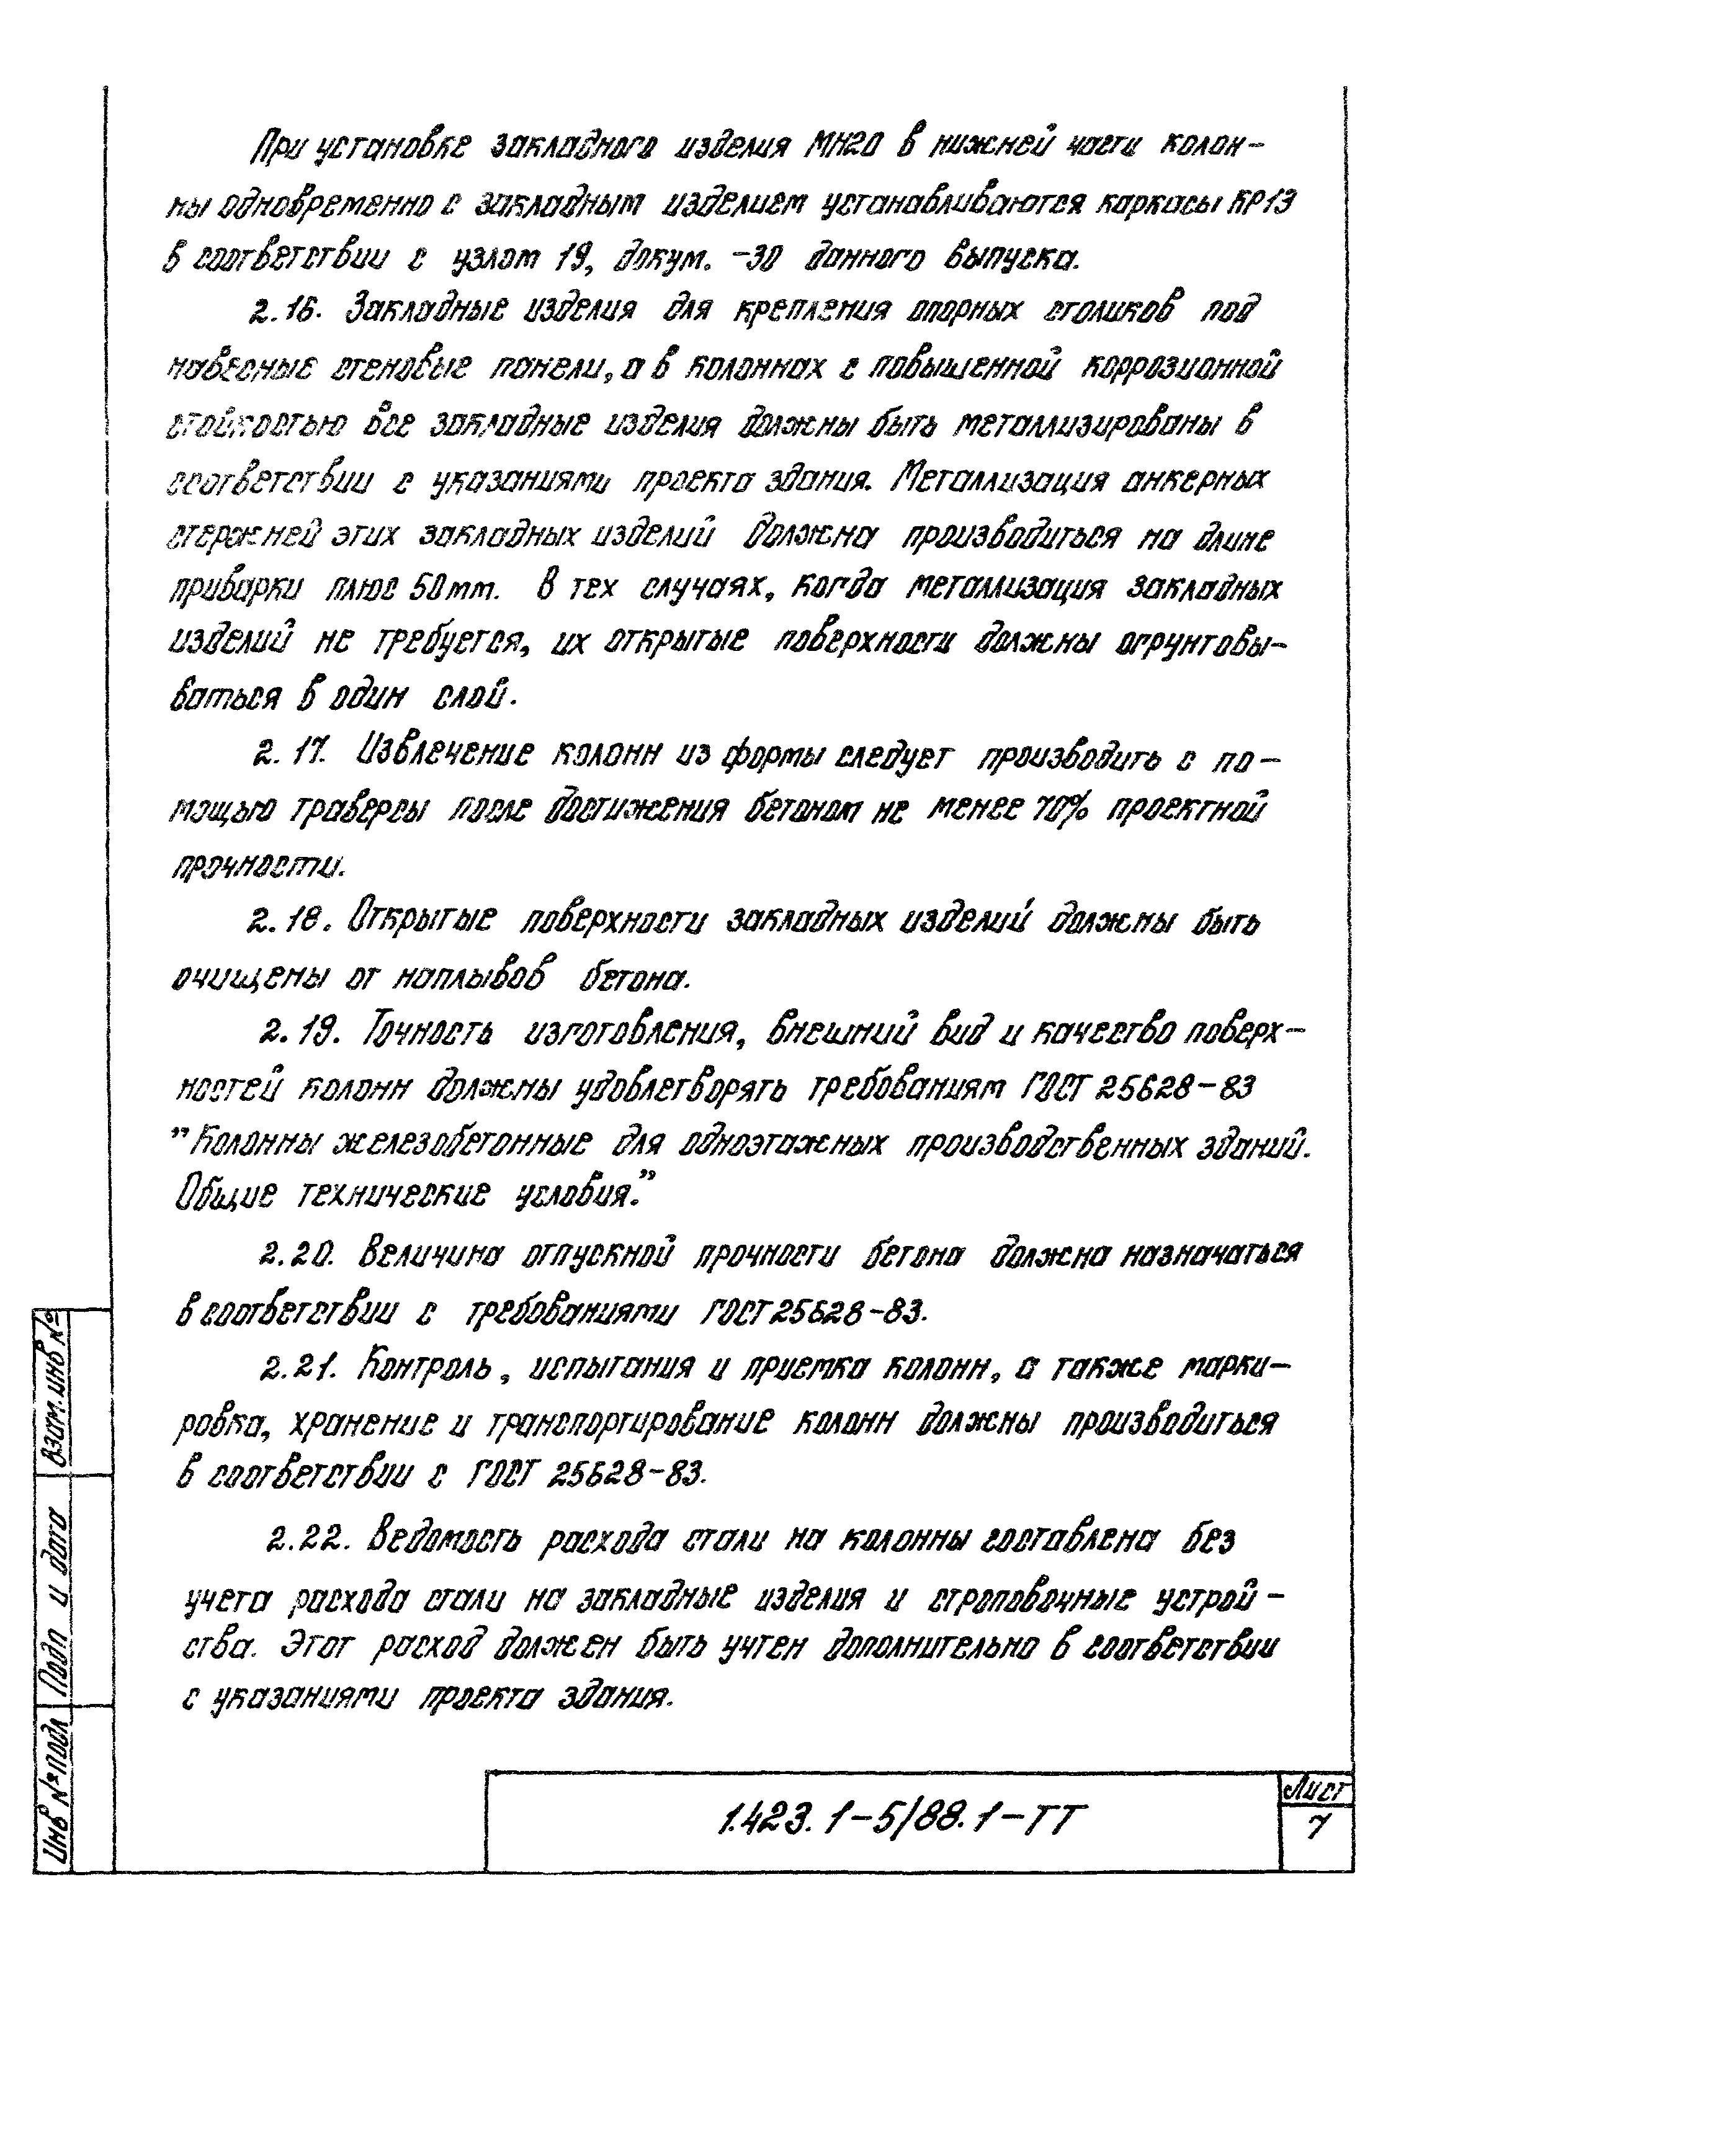 При установке закладного изделия МН20 в нижней части колон-
ны одновременно с закладным изделием устанавливаются каркасы КР13
в соответствии с узлом 19, докум. -30 данного выпуска.
2.16. Закладные изделия для крепления опорных столиков под
навесные стеновые панели, а в колоннах с повышенной коррозионной
стойкостью все закладные изделия должны быть металлизированы в
соответствии с указаниями проекта здания. Металлизация анкерных
стержней этих закладных изделий должна производиться на длине
приварки плюс 50мм. В тех случаях, когда металлизация закладных
изделий не требуется, их открытые поверхности должны огрунтовы-
ваться в один слой.
2.17. Извлечение колонн из формы следует производить с по-
мощью траверсы после достижения бетоном не менее 70% проектной
прочности.
2.18. Открытые поверхности закладных изделий должны быть
очищены от наплывов бетона.
2.19. Точность изготовления, внешний вид и качество поверх-
ностей колонн должны удовлетворять требованиям ГОСТ 25628-83
"Колонны железобетонные для одноэтажных производственных зданий.
Общие технические условия."
2.20. Величина отпускной прочности бетона должна назначаться
в соответствии с требованиями ГОСТ 25628-83.
2.21. Контроль, испытания и приемка колонн, а также марки-
ровка, хранение и транспортирование колонн должны производиться
в соответствии с ГОСТ 25628-83.
2.22. Ведомость расхода стали на колонны составлена без
учета расхода стали на закладные изделия и строповочные устрой-
ства. Этот расход должен быть учтен дополнительно в соответствии
с указаниями проекта здания.
Взам.инв №
Подп и дата
Инв №подл
1.423.1-5/88.1-ТТ
Лист
7